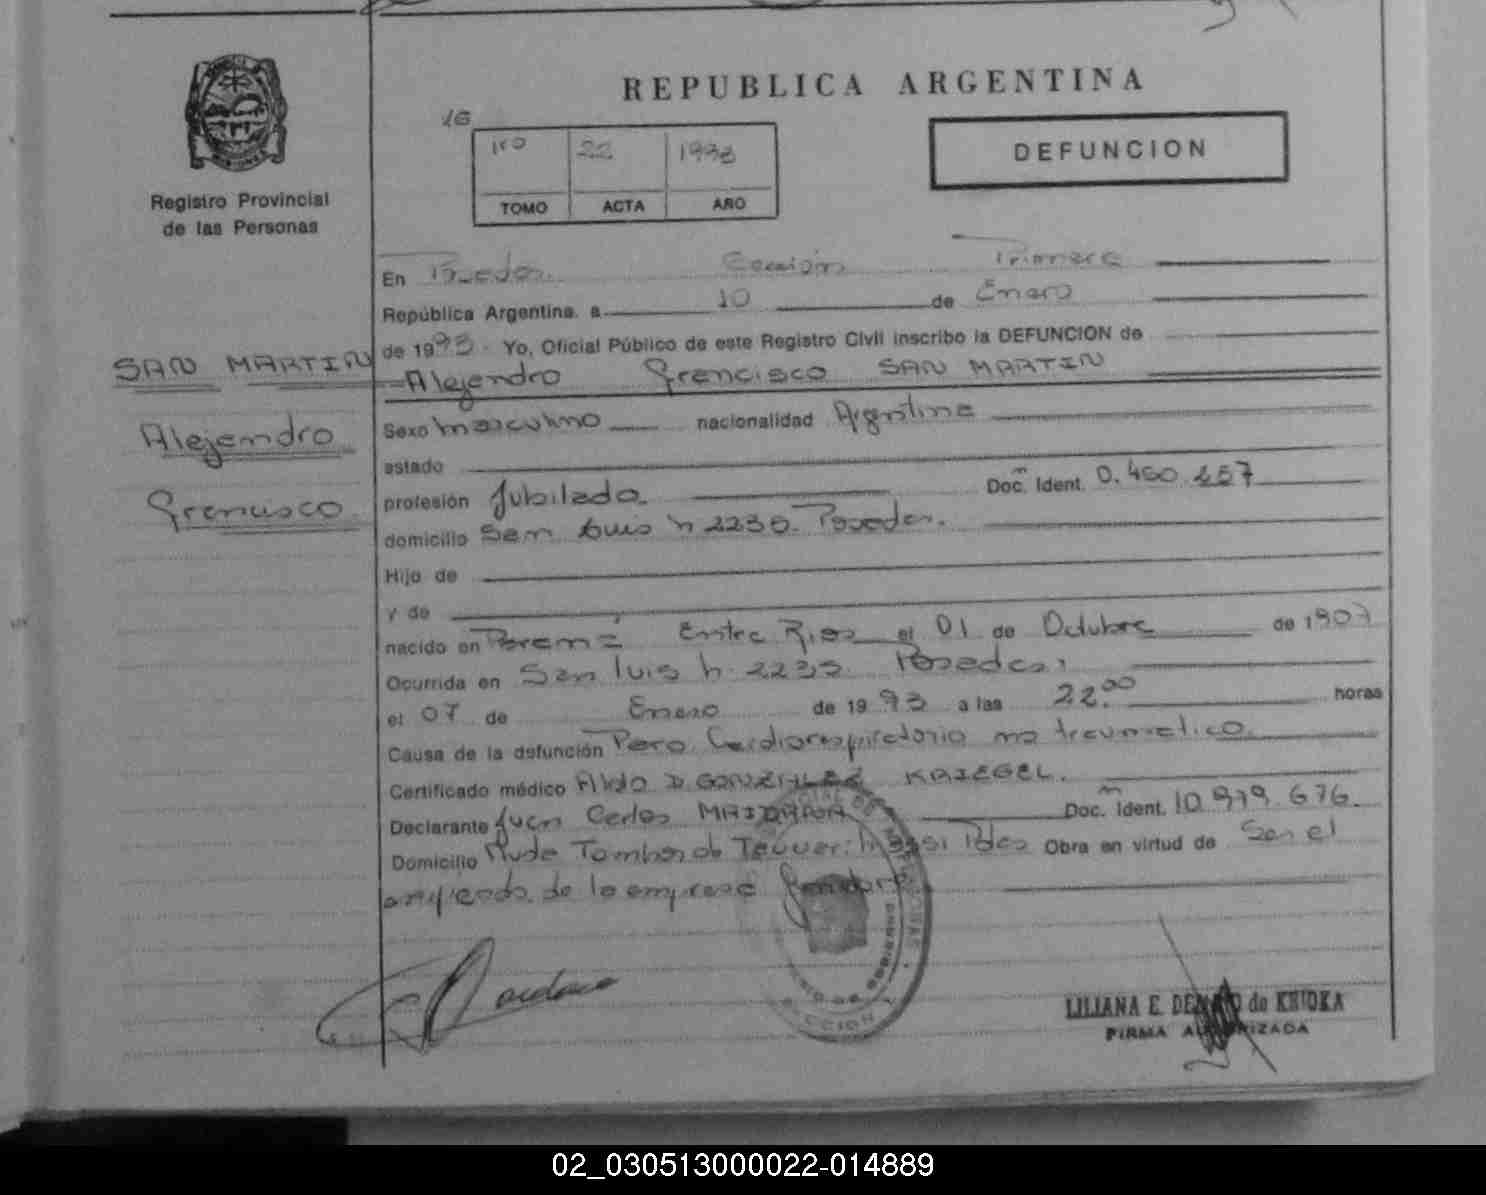 REPUBLICA ARGENTINA
16
1ro 22 1993
TOMO ACTA AÑO
DEFUNCION
Registro Provincial
de las Personas
En Posadas Sección Primera
República Argentina, a 10 de Enero
de 1993. Yo, Oficial Público de este Registro Civil inscribo la DEFUNCION de
SAN MARTIN
Alejandro Francisco
Alejandro Francisco SAN MARTIN
Sexo masculino nacionalidad Argentina
estado
profesión Jubilado Doc. Ident. 0.460.457
domicilio San Luis n 2235. Posadas.
Hijo de
y de
nacido en Paraná Entre Rios el 01 de Octubre de 1907
Ocurrida en San Luis n 2235. Posadas
el 07 de Enero de 1993 a las 22.00 horas
Causa de la defunción Paro Cardiorespiratorio no traumatico.
Certificado médico Aldo D. GONZALEZ KRIEGEL.
Declarante Juan Carlos MAIDANA Doc. Ident. 10.979.676.
Domicilio Avda Obra en virtud de Ser el
empleado de la empresa
LILIANA E. de
FIRMA AUTORIZADA
02_030513000022-014889